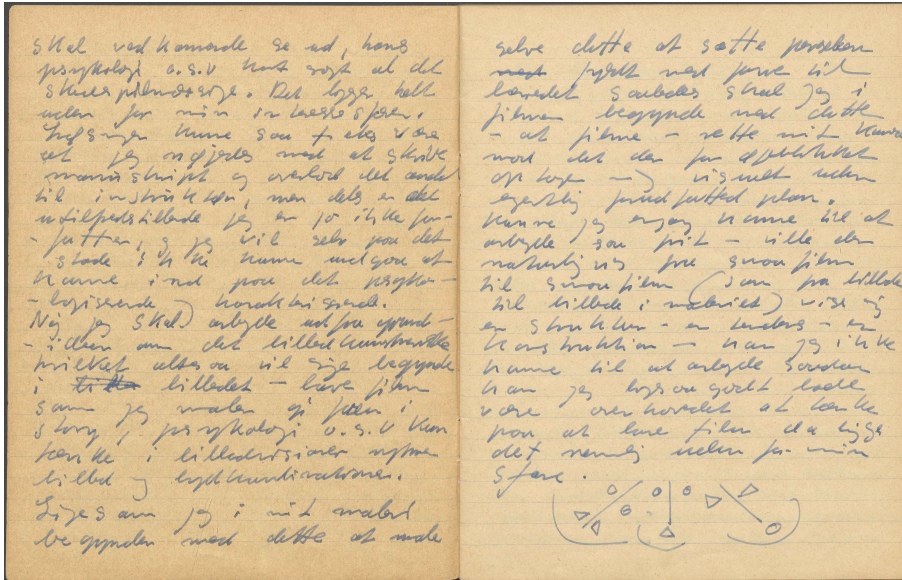 skal vedkomende se ud, hans
psykologi o.s.v kort sagt al det
skuespilmæssige. Det ligger helt
uden for min interessesfære.
kunne som f eks være
at jeg nøjedes med at skrive
manuskript og overlod det andet
til instruktøren, men dels er det
utilfredsstillede jeg er jo ikke for-
-fatter, og jeg vil selv paa det
ikke kunne undgaa at
komme ind paa det psyko-
-logiserende karakteriserende.
Nej jeg skal arbejde ud fra grund-
-ideen om det billedkunstneriske
hvilket altsaa vil sige begynde
i billedet – lave film
som jeg maler gi fa i
story, psykologi o.s.v kun
tænke i billedvisioner rytmer
billed og lydkombinationer.
Ligesom jeg i mit maleri
begynder med dette at male
selve dette at sætte penselen
fyldt med farve til
lærredet saaledes skal jeg i
filmen begynde med dette
– at filme – rette mit kamera
mod det der for øjeblikket
optager mig visuelt uden
egentlig fastsat plan.
Kunne jeg engang komme til at
arbejde saa frit – ville der
naturligvis fra smaafilm
til smaafilm (som fra billede
til billede i maleriet) vise sig
en struktur – en tendens – en
konstruktion – kan jeg ikke
komme til at arbejde saadan
kan jeg ligesaa godt lade
være overhovedet at tænke
paa at lave film da ligger
det nemlig uden for min
sfære.